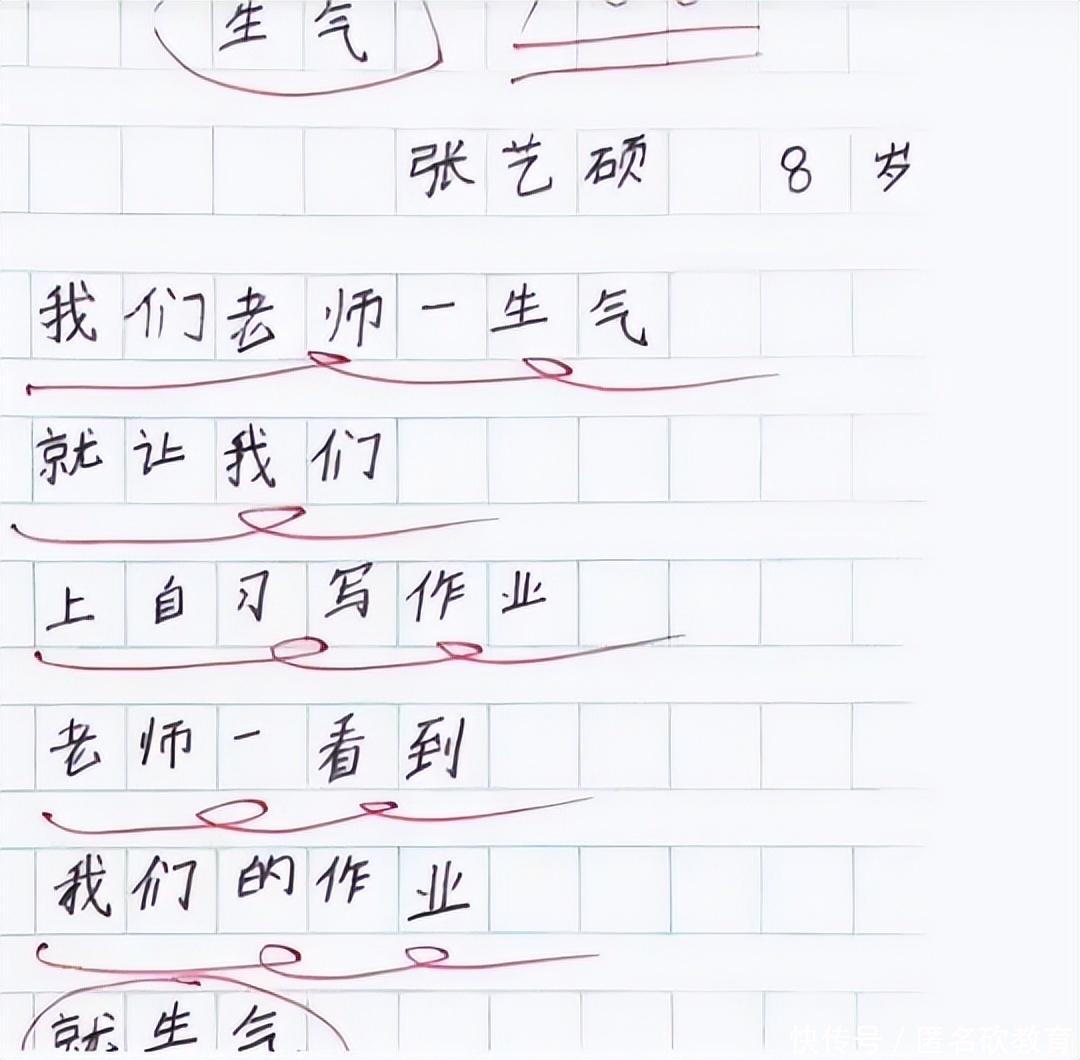 生气
张艺硕 8岁
我们老师一生气
就让我们
上自习写作业
老师一看到
我们的作业
就生气
快传号 / 匿名砍教育